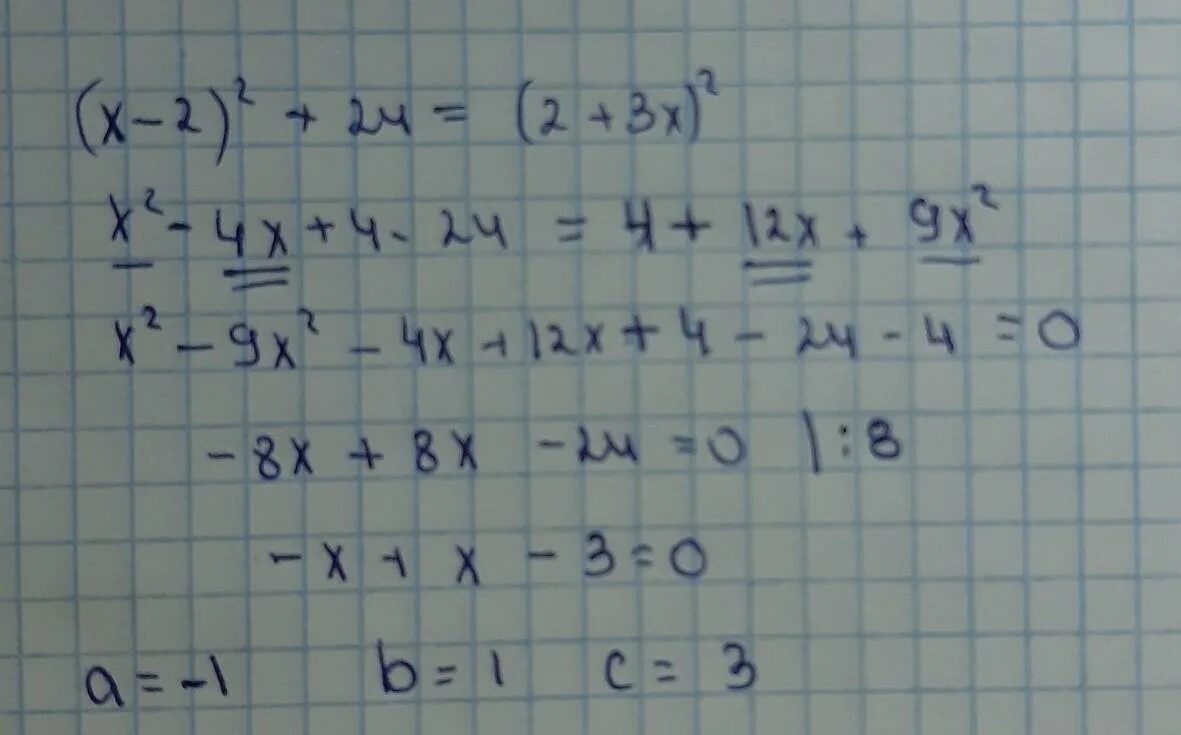 (x-2)² + 24 = (2 + 3x)²
x² - 4x + 4 - 24 = 4 + 12x + 9x²
x² - 9x² - 4x + 12x + 4 - 24 - 4 = 0
-8x + 8x - 24 = 0 |:8
-x + x - 3 = 0
a = -1 b = 1 c = 3